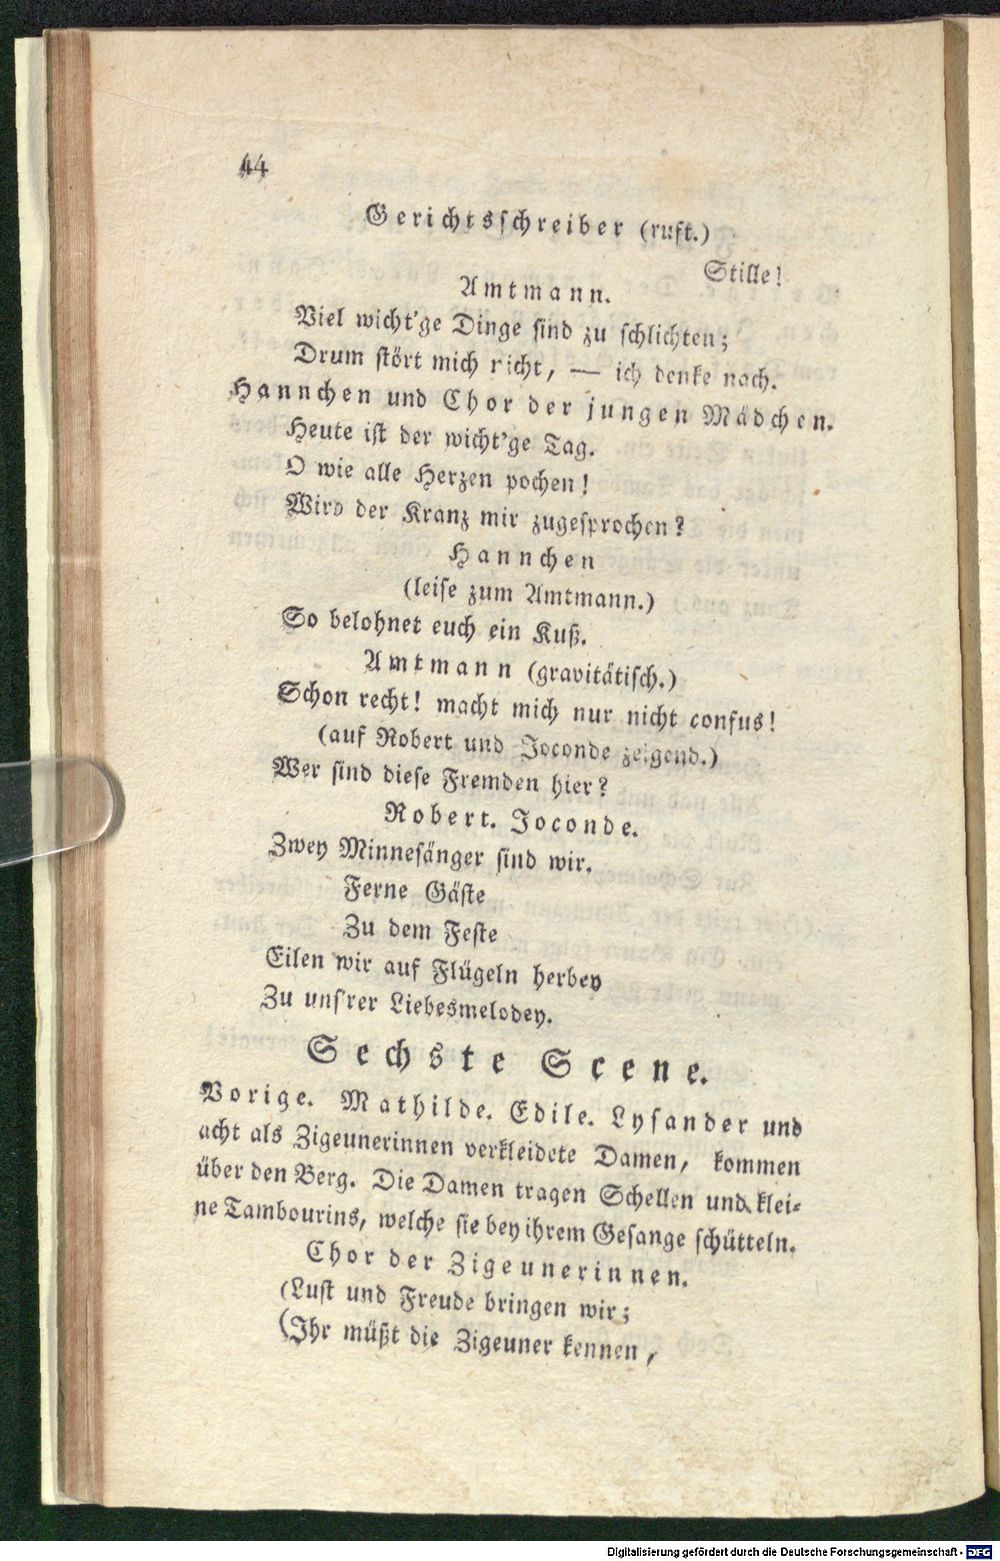 44
Gerichtsschreiber (ruft.)
Stille!
Amtmann.
Viel wicht'ge Dinge sind zu schlichten;
Drum stört mich nicht, — ich denke nach.
Hannchen und Chor der jungen Mädchen.
Heute ist der wicht'ge Tag.
O wie alle Herzen pochen!
Wird der Kranz mir zugesprochen?
Hannchen
(leise zum Amtmann.)
So belohnet euch ein Kuß.
Amtmann (gravitätisch.)
Schon recht! macht mich nur nicht confus!
(auf Robert und Joconde zeigend.)
Wer sind diese Fremden hier?
Robert. Joconde.
Zwey Minnesänger sind wir.
Ferne Gäste
Zu dem Feste
Eilen wir auf Flügeln herbey
Zu uns'rer Liebesmelodey.
Sechste Scene.
Vorige. Mathilde. Edile. Lysander und
acht als Zigeunerinnen verkleidete Damen, kommen
über den Berg. Die Damen tragen Schellen und klei-
ne Tambourins, welche sie bey ihrem Gesange schütteln.
Chor der Zigeunerinnen.
(Lust und Freude bringen wir;
(Ihr müßt die Zigeuner kennen,
Digitalisierung gefördert durch die Deutsche Forschungsgemeinschaft - DFG